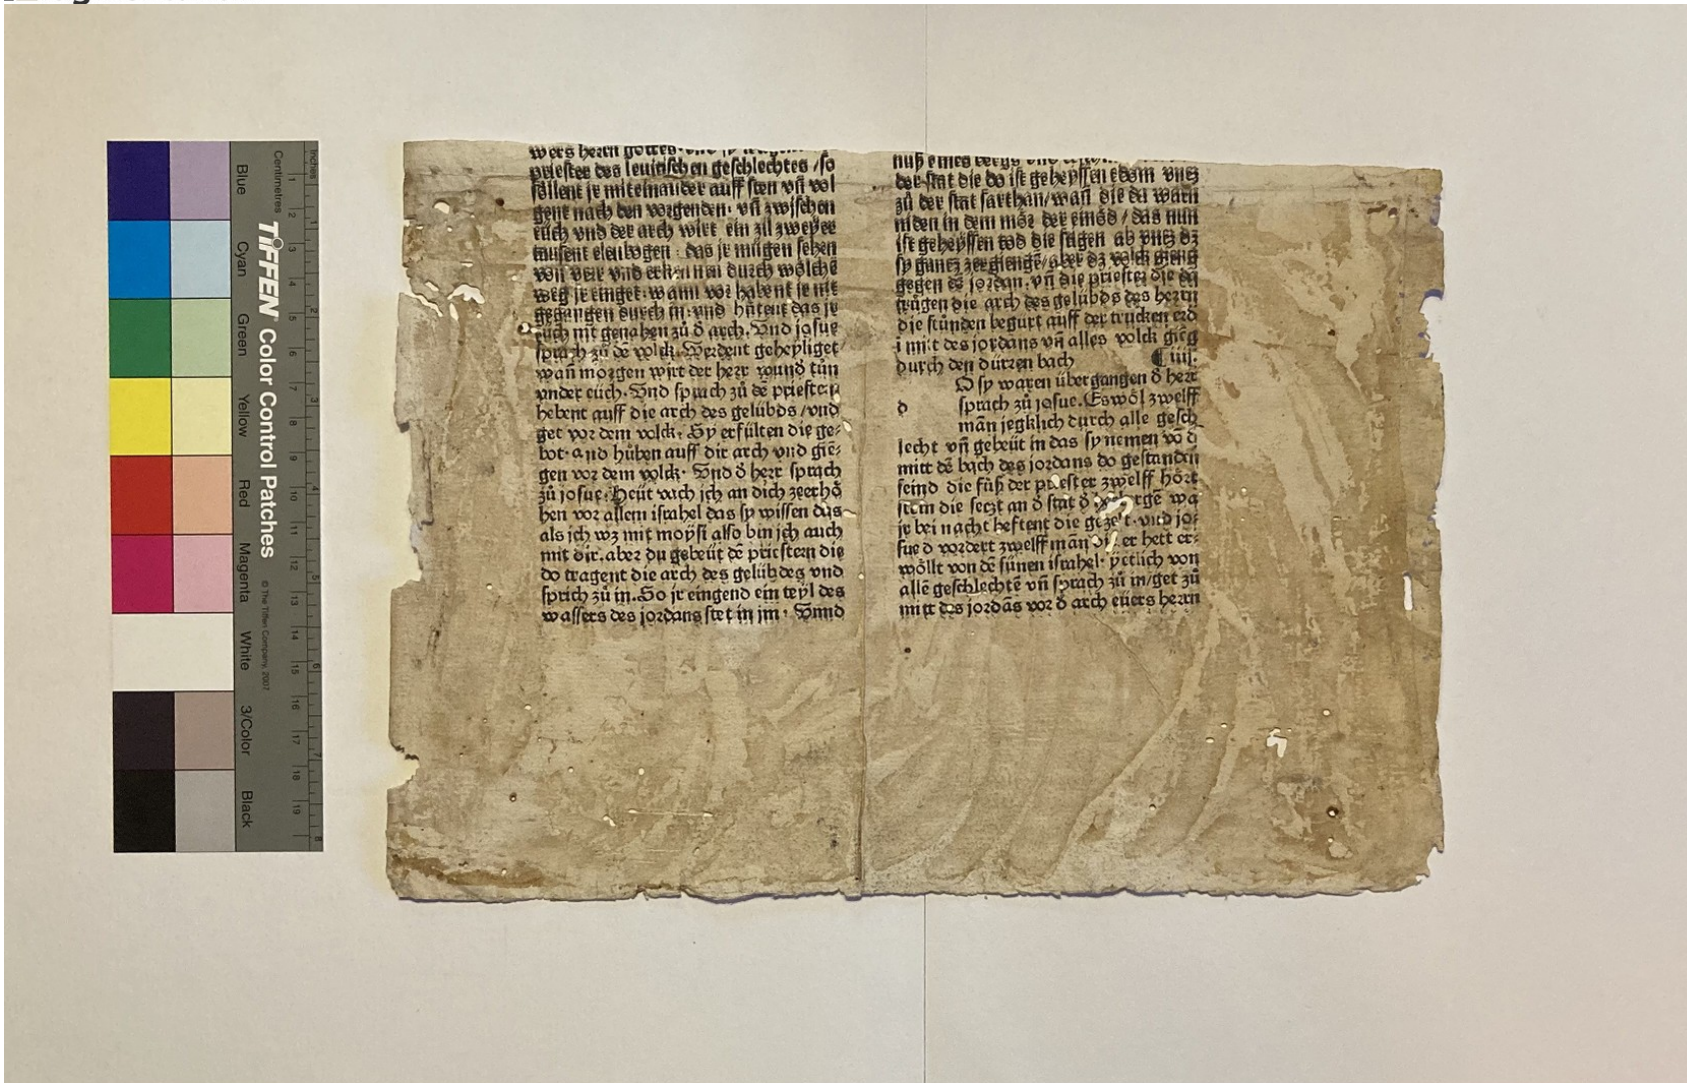 wers herrn gottes. vnd sy
priester des leuitischen geschlechtes /so
söllent jr miteinander auff sten vñ vol
gent nach den vorgenden. vñ zwischen
eüch vnd der arch wirt ein zil zweyer
tausent elenbogen : das jr mügen sehen
von verr vnd erkennen durch wölche
weg jr einget. wann vor habent jr nit
gegangen durch in. vnd hütent das jr
eüch nit genahen zů d̄ arch. Vnd josue
sprach zů dē volck. Werdent geheyliget
wañ morgen wirt der herr wund̄ tůn
vnder eüch. Vnd sprach zů dē priestern
hebent auff die arch des gelübds /vnd
get vor dem volck. Sy erfülten die ge⸗
bot. and hůben auff dir arch vnd giē⸗
gen vor dem volck. Vnd d̄ herr sprach
zů josue. Heüt vach ich an dich zeerhö
hen vor allem israhel das sy wissen das
als ich wz mit moysi also bin ich auch
mit dir. aber du gebeüt dē priestern die
do tragent die arch des gelübdes vnd
sprich zů in. So jr eingend ein teyl des
wassers des jordans stet in im . Vnnd
nuß eines bergs vnd
der stat die do ist geheyssen edom vntz
zů der stat sarthan/wañ die da warn
niden in dem mör der einöd / das nun
ist geheyssen tod die stigen ab vntz dz
sy gantz zergienge/aber dz volck gieng
gegen dē jordan. vñ die priester die da
trůgen die arch des gelübds des herrn
die stůnden begurt auff der trucken erd
i mitt des jordans vñ alles volck gieg
durch den dürren bach ¶ iiij.
O sy waren übergangen d̄ herr
d sprach zů josue. Eswöl zwelff
man jegklich durch alle gesch
lecht vñ gebeüt in das sy nemen vō d
mitt dē bach des jordans do gestanden
seind die füß der priester zwelff hört
stein die setzt an d̄ stat d̄ wa
jr bei nacht heftent die gezelt. vnd jo⸗
sue d vordert zwelff man die er hett er⸗
wöllt von dē sünen israhel. yetlich von
allē geschlechtē vñ sprach zů in/get zů
mitt des jordās vor d̄ arch eüers herrn
Centimetres
Inches
TIFFEN Color Control Patches
© The Tiffen Company, 2007
Blue
Cyan
Green
Yellow
Red
Magenta
White
3/Color
Black